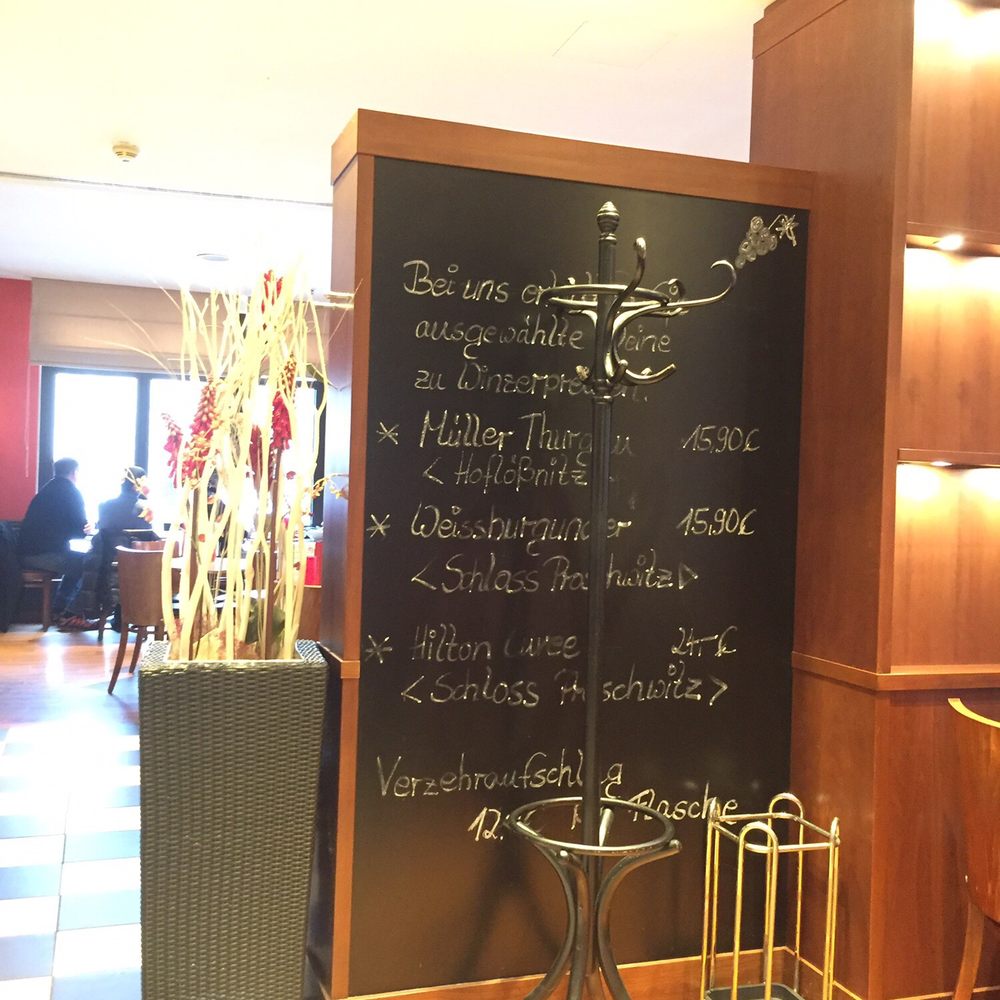 Bei uns
ausgewählte Weine
zu Winzerpreisen.
* Müller Thurgau 15,90€
< Hoflößnitz
* Weissburgunder 15,90€
< Schloss Proschwitz >
* Hilton Cuvee 24,- €
< Schloss Proschwitz >
Verzehraufschlag
Flasche